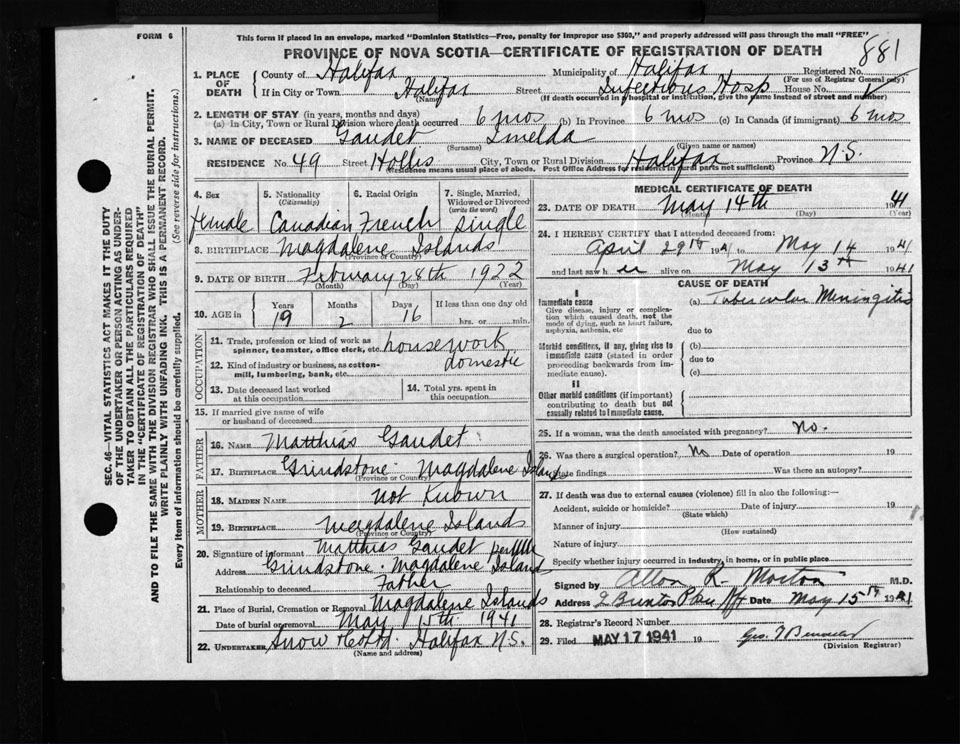 FORM 6
This form if placed in an envelope, marked "Dominion Statistics—Free, penalty for improper use $300," and properly addressed will pass through the mail "FREE"
PROVINCE OF NOVA SCOTIA—CERTIFICATE OF REGISTRATION OF DEATH
881
1. PLACE OF DEATH
County of Halifax Municipality of Halifax Registered No.
(For use of Registrar General only)
If in City or Town Halifax Street Infectious Hosp House No.
(Name) (If death occurred in hospital or institution, give the name instead of street and number)
2. LENGTH OF STAY (in years, months and days)
(a) In City, Town or Rural Division where death occurred 6 mos (b) In Province 6 mos (c) In Canada (if immigrant) 6 mos
3. NAME OF DECEASED Gaudet Imelda
(Surname) (Given name or names)
RESIDENCE No. 49 Street Hollis City, Town or Rural Division Halifax Province N.S.
(Residence means usual place of abode. Post Office Address for residents in rural parts not sufficient)
4. Sex female
5. Nationality (Citizenship) Canadian
6. Racial Origin French
7. Single, Married, Widowed or Divorced (write the word) Single
8. BIRTHPLACE Magdalene Islands
(Province or Country)
9. DATE OF BIRTH February 28th 1922
(Month) (Day) (Year)
10. AGE in Years 19 Months 2 Days 16 If less than one day old hrs. or min.
OCCUPATION
11. Trade, profession or kind of work as spinner, teamster, office clerk, etc. housework
12. Kind of industry or business, as cotton-mill, lumbering, bank, etc. domestic
13. Date deceased last worked at this occupation
14. Total yrs. spent in this occupation
15. If married give name of wife or husband of deceased
FATHER
16. NAME Matthias Gaudet
17. BIRTHPLACE Grindstone. Magdalene Islands
(Province or Country)
MOTHER
18. MAIDEN NAME not Known
19. BIRTHPLACE Magdalene Islands
(Province or Country)
20. Signature of informant Matthias Gaudet per
Address Grindstone. Magdalene Island
Relationship to deceased Father
21. Place of Burial, Cremation or Removal Magdalene Islands
Date of burial or removal May 15th 1941
22. UNDERTAKER Snow Halifax N.S.
(Name and address)
MEDICAL CERTIFICATE OF DEATH
23. DATE OF DEATH May 14th 1941
(Month) (Day) (Year)
24. I HEREBY CERTIFY that I attended deceased from:
April 29th 1941 to May 14 1941
and last saw h er alive on May 13th 1941
CAUSE OF DEATH
I
Immediate cause
Give disease, injury or complication which caused death, not the mode of dying, such as heart failure, asphyxia, asthenia, etc
(a) Tubercular Meningitis
due to
Morbid conditions, if any, giving rise to immediate cause (stated in order proceeding backwards from immediate cause).
(b)
due to
(c)
II
Other morbid conditions (if important) contributing to death but not causally related to immediate cause.
25. If a woman, was the death associated with pregnancy? No.
26. Was there a surgical operation? No Date of operation 19
State findings Was there an autopsy?
27. If death was due to external causes (violence) fill in also the following:—
Accident, suicide or homicide? Date of injury 19
(State which)
Manner of injury
(How sustained)
Nature of injury
Specify whether injury occurred in industry, in home, or in public place
Signed by Allan R. Morton M.D.
Address Date May 15th 1941
28. Registrar's Record Number
29. Filed MAY 17 1941 19
(Division Registrar)
SEC. 46—VITAL STATISTICS ACT MAKES IT THE DUTY
OF THE UNDERTAKER OR PERSON ACTING AS UNDER-
TAKER TO OBTAIN ALL THE PARTICULARS REQUIRED
IN THE "CERTIFICATE OF REGISTRATION OF DEATH"
AND TO FILE THE SAME WITH THE DIVISION REGISTRAR WHO SHALL ISSUE THE BURIAL PERMIT.
WRITE PLAINLY WITH UNFADING INK. THIS IS A PERMANENT RECORD.
Every item of information should be carefully supplied. (See reverse side for instructions.)